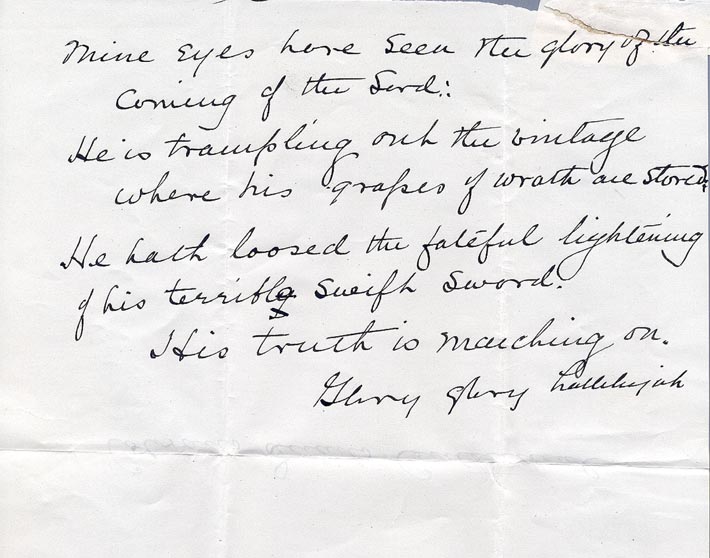 Mine Eyes have Seen the glory of the
Coming of the Lord:
He is trampling out the vintage
where his grapes of wrath are stored;
He hath loosed the fateful lightening
of his terrible Swift Sword.
His truth is marching on.
Glory glory hallelujah